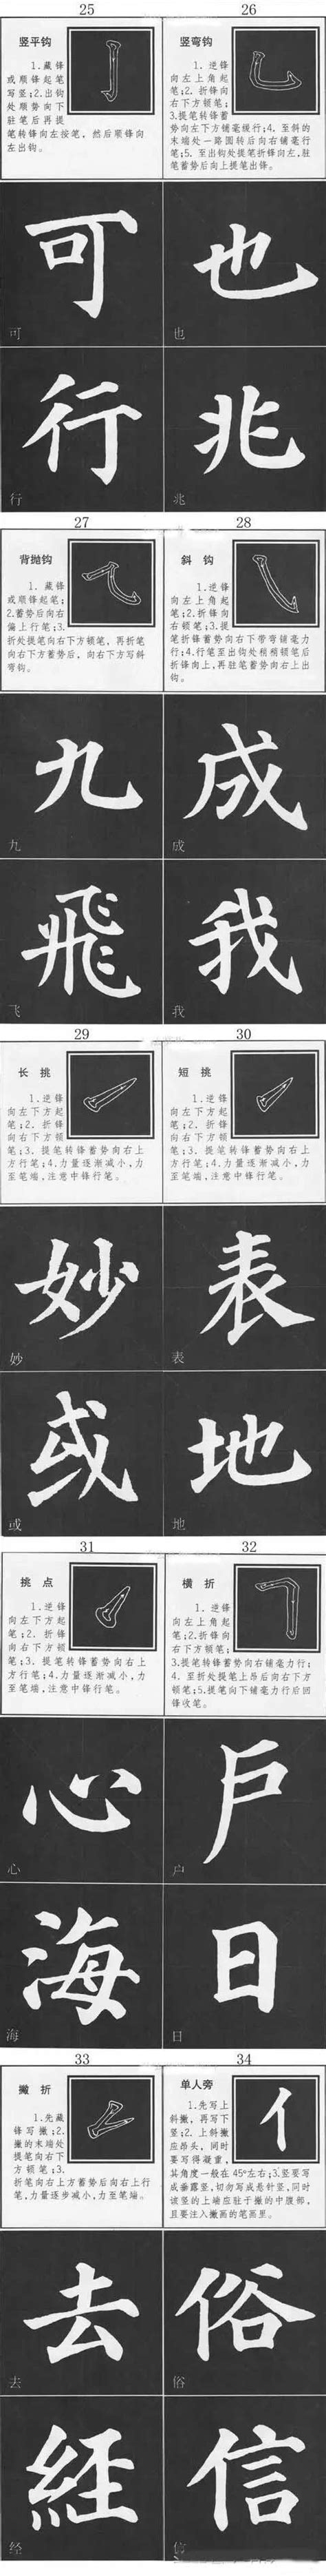 25
26
竖平钩
1.藏锋
或顺锋起笔
写竖;2.出钩
处顺势向下
驻笔后再提
笔转锋向左按笔，然后顺锋向
左出钩。
竖弯钩
1.逆锋
向左上角起
笔;2.折锋向
右下方顿笔;
3.提笔转锋蓄
势向左下方铺毫缓行;4.至斜的
末端处一路圆转后向右铺毫行
笔;5.至出钩处提笔折锋向左,驻
笔蓄势后向上提笔出锋。
可
也
可
也
行
兆
行
兆
27
28
背抛钩
1.藏锋
或顺锋起笔;
2.蓄势后向右
偏上行笔;3.
折处提笔向右下方顿笔，再折笔
向左下方蓄势后，向右下方写斜
弯钩。
斜钩
1.逆锋
向左上角起
笔;2.折锋向
右顿笔;3.提
笔折锋蓄势向右下带弯铺毫力
行;4.行笔至出钩处稍稍顿笔后
折锋向上,再驻笔蓄势向右上出
钩。
九
成
九
成
飛
我
飞
我
29
30
长挑
1.逆锋
向左下方起
笔;2.折锋
向右下方顿
笔;3.提笔转锋蓄势向右上
方行笔;4.力量逐渐减小,力
至笔端,注意中锋行笔。
短挑
1.逆锋
向左下方起
笔;2.折锋
向右下方顿
笔;3.提笔转锋蓄势向右上
方行笔;4.力量逐渐减小,力
至笔端,注意中锋行笔。
妙
表
妙
表
或
地
或
地
31
32
挑点
1.逆锋
向左下方起
笔;2.折锋
向右下方顿
笔;3.提笔转锋蓄势向右上
方行笔;4.力量逐渐减小,力
至笔端,注意中锋行笔。
横折
1.逆锋
向左上角起
笔;2.折锋向
右下方顿笔;
3.提笔转锋蓄势向右铺毫力行;
4.至折处提笔上昂后向右下方
顿笔;5.提笔向下铺毫力行后回
锋收笔。
心
戶
心
户
海
日
海
日
33
34
撇折
1.先藏
锋写撇;2.
撇的末端处
提笔向右下
方顿笔;3.
折笔向右上方蓄势后向右上行
笔,力量逐步减小,力至笔端。
单人旁
1.先写上
斜撇，再写下
竖;2.上斜撇
应昂头，同时
要写得凝重，
其角度一般在45°左右;3.竖要写
成垂露竖,切勿写成悬针竖,同时
该竖的上端应驻于撇的中腹部,
且要注入撇画的笔画里。
亻
去
俗
去
俗
経
信
经
信